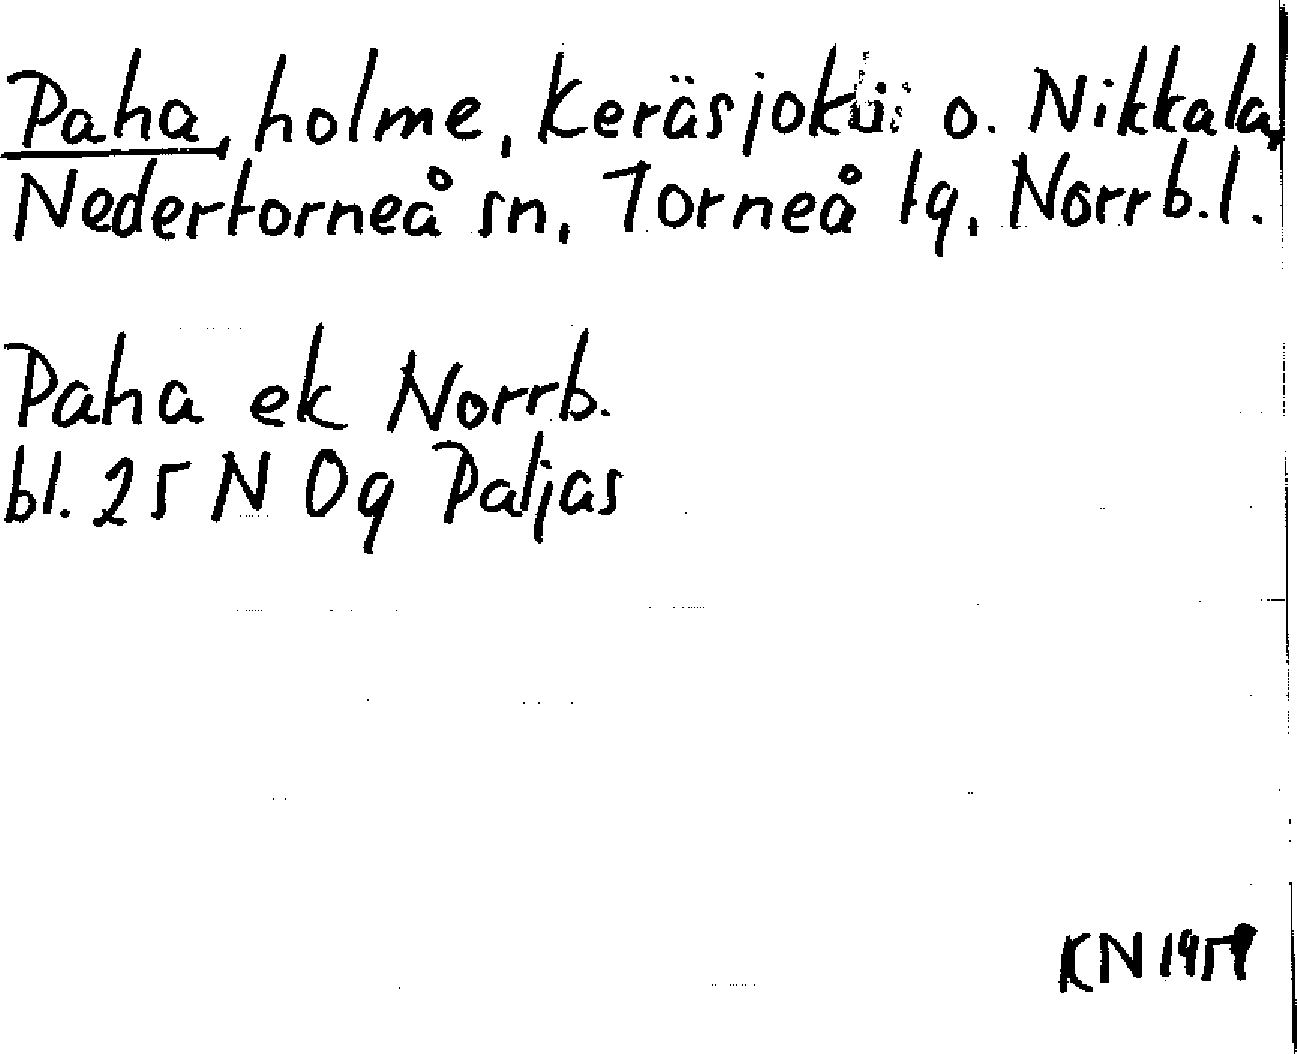 Paha, holme, Keräsjoki o. Nikkala,
Nedertorneå sn, Torneå tg, Norrb. l.
Paha ek Norrb.
bl. 25 N Og Paljas
KN 1959